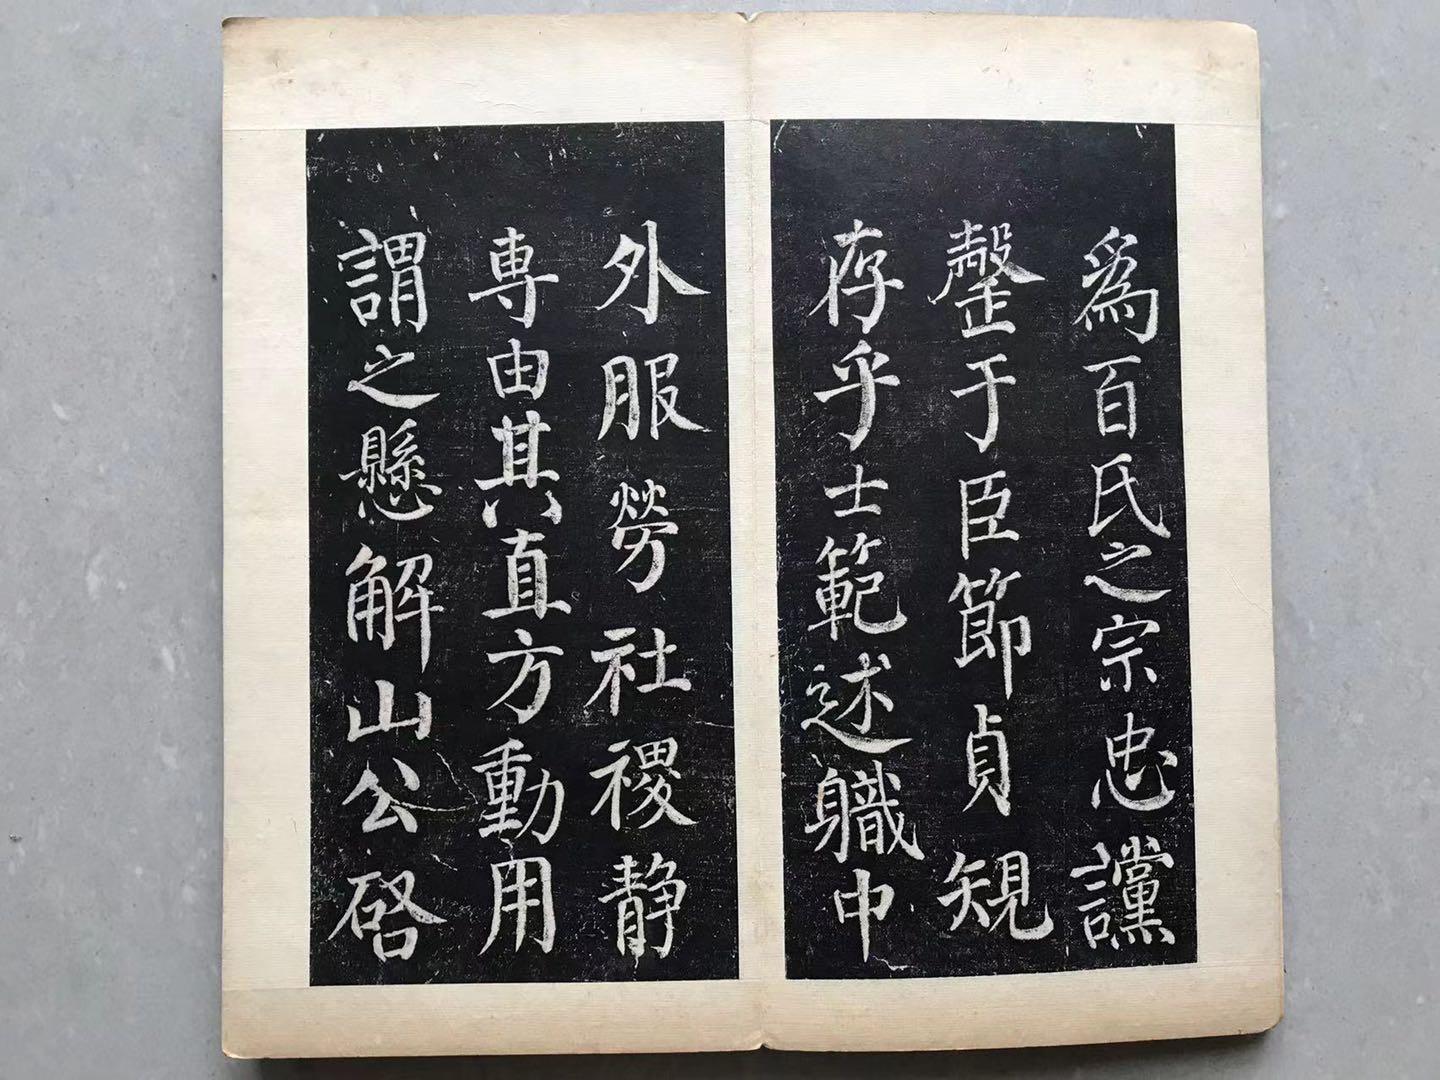 爲百氏之宗忠讜
罄于臣節貞䂓
存乎士範述軄中
外服勞社禝静
専由其直方動用
謂之懸解山公啓